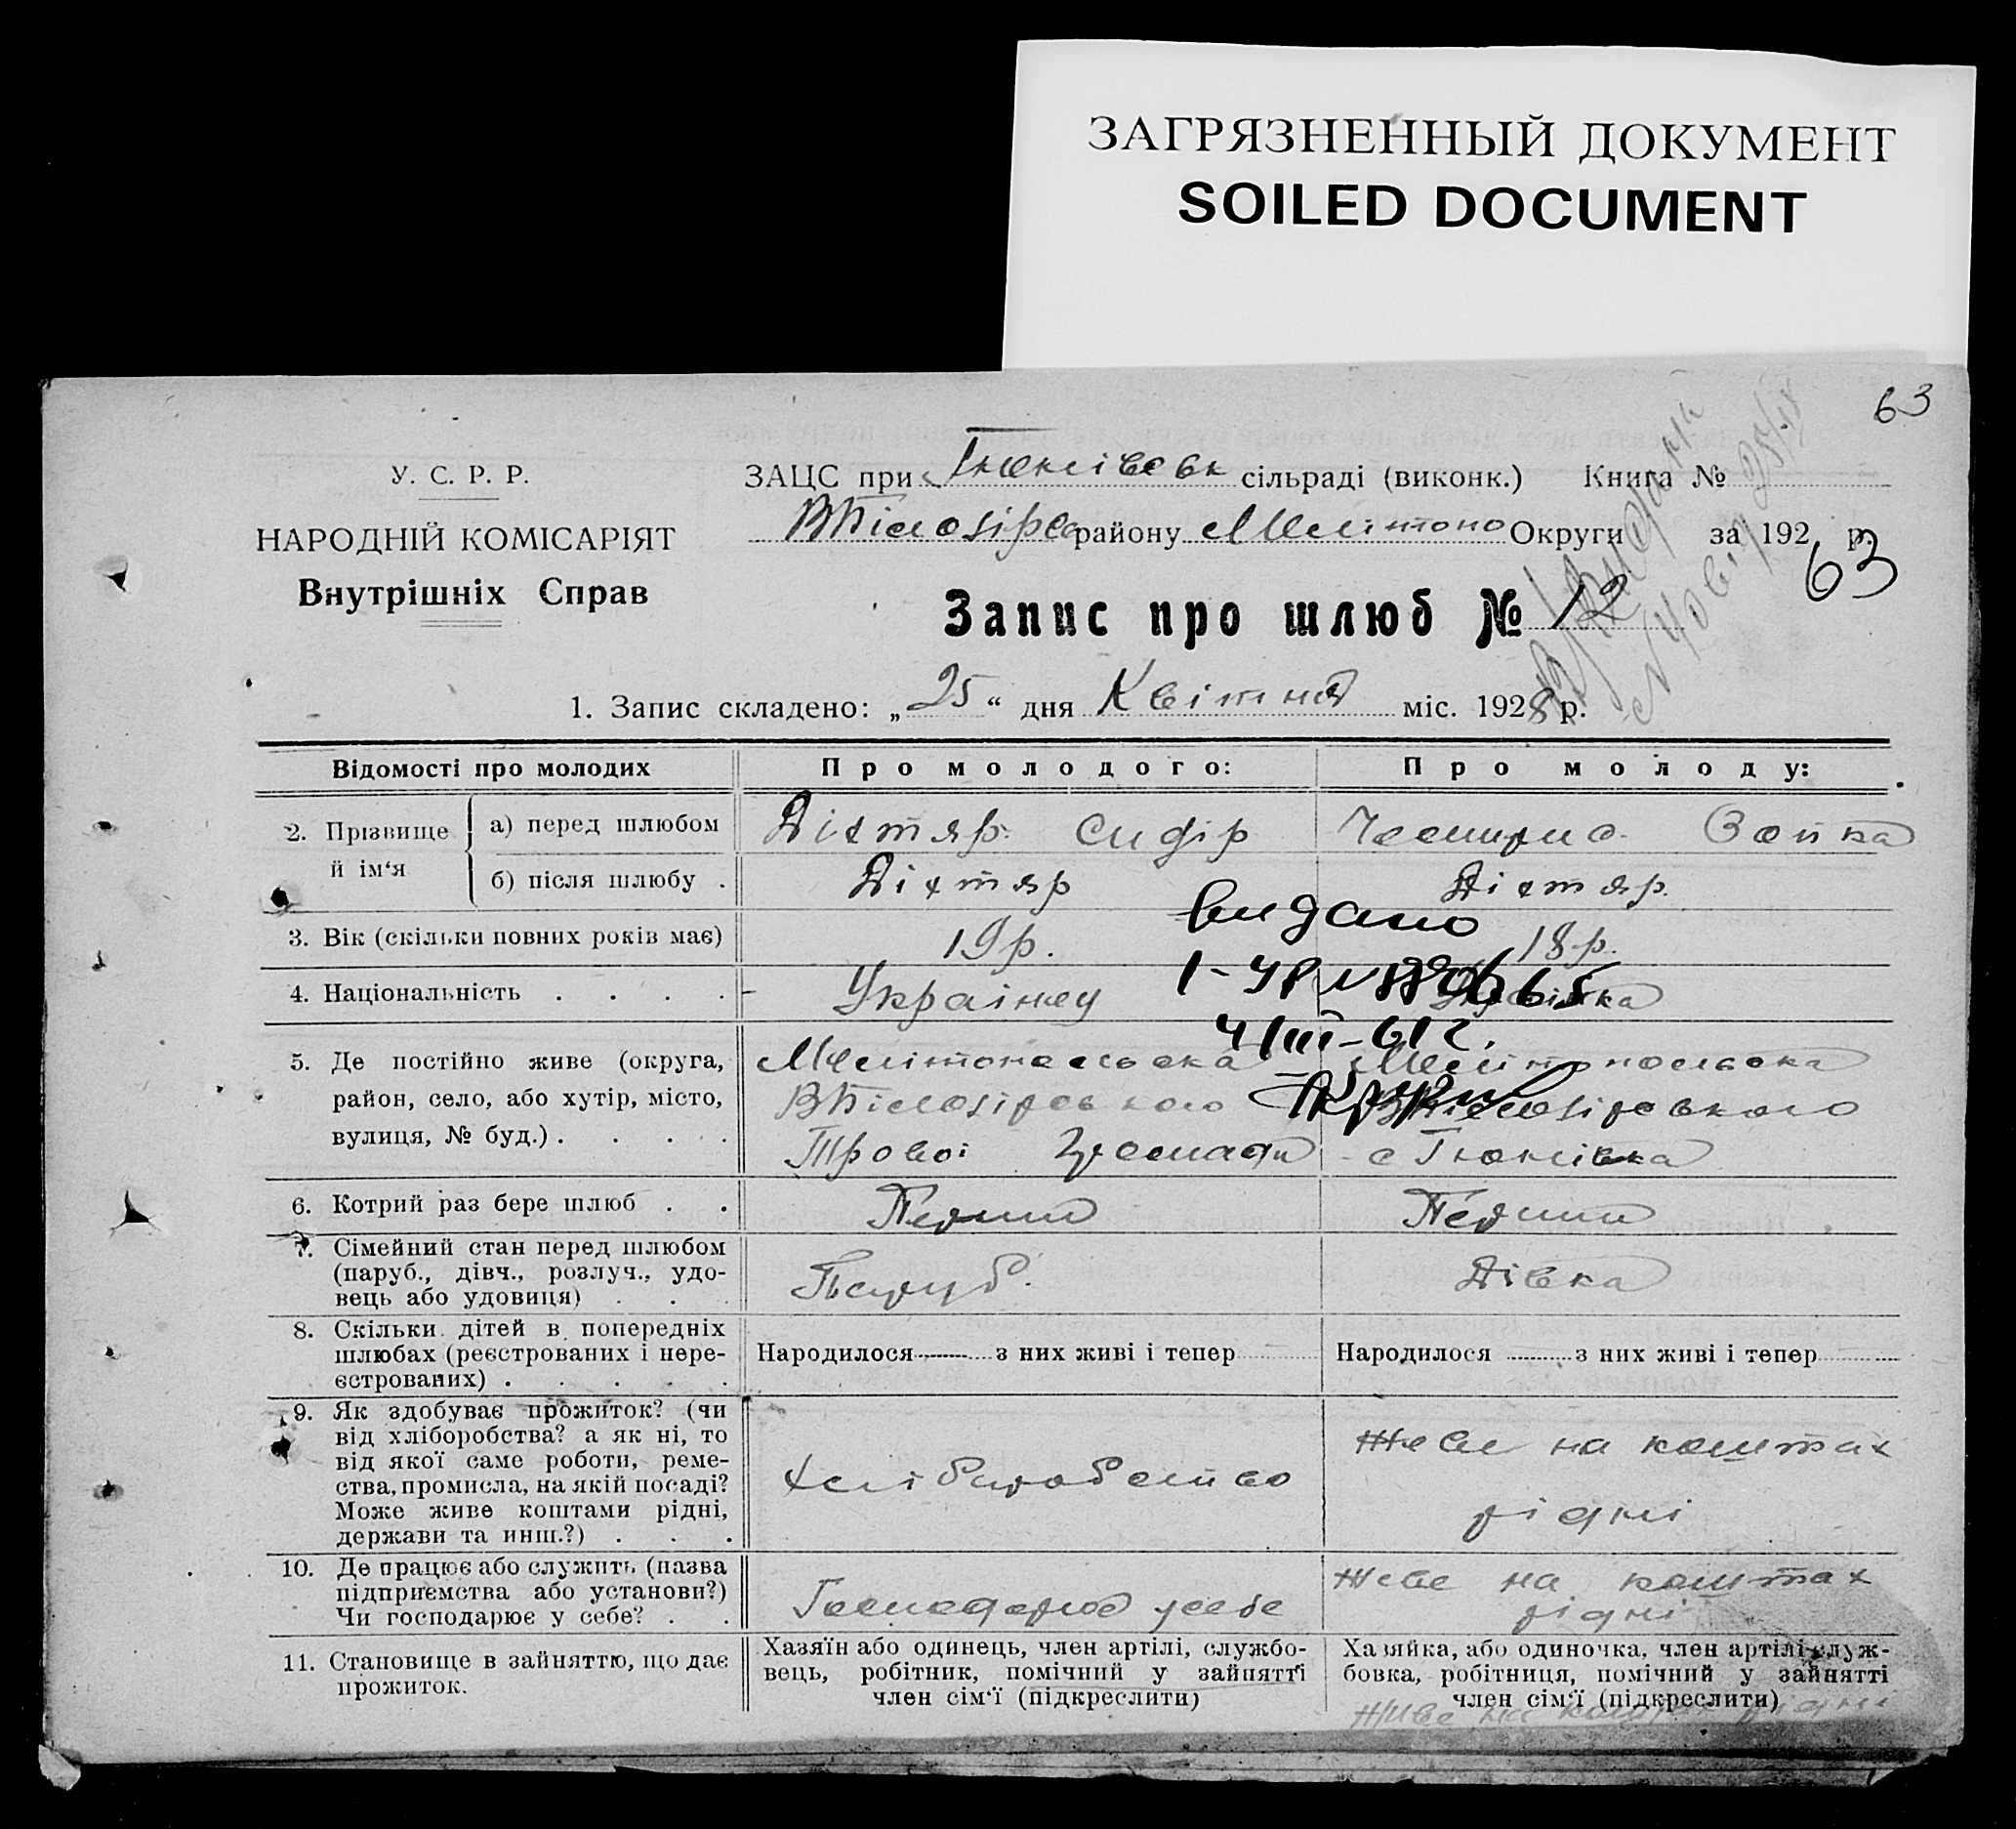 ЗАГРЯЗНЕННЫЙ ДОКУМЕНТ
SOILED DOCUMENT
63
У. С. Р. Р.
НАРОДНІЙ КОМІСАРІЯТ
Внутрішніх Справ
ЗАЦС при сільраді (виконк.) Книга №
району Мелітопо Округи за 192 р.
63
Запис про шлюб № 12
1. Запис складено: „25“ дня Квітня міс. 1928 р.
Відомості про молодих
Про молодого:
Про молоду:
2. Прізвище й ім‘я
а) перед шлюбом
Дігтяр Сидір
б) після шлюбу .
Дігтяр
Дігтяр
видано
3. Вік (скільки повних років має)
19 р.
18 р.
4. Національність . . . .
Українец
Українка
4/III-61 г.
5. Де постійно живе (округа,
район, село, або хутір, місто,
вулиця, № буд.) . . . .
Мелітопольська
ВБілозірського
Громади
Мелітопольська
ВБілозірського
с Тюнівка
6. Котрий раз бере шлюб . .
Перший
Перший
7. Сімейний стан перед шлюбом
(паруб., дівч., розлуч., удо-
вець або удовиця) . .
Паруб.
Дівка
8. Скільки дітей в попередніх
шлюбах (реєстрованих і нере-
єстрованих) . . . . .
Народилося з них живі і тепер
Народилося з них живі і тепер
9. Як здобуває прожиток? (чи
від хліборобства? а як ні, то
від якої саме роботи, реме-
ства, промисла, на якій посаді?
Може живе коштами рідні,
держави та инш.?) . . .
Хліборобство
Живе на коштах
рідні
10. Де працює або служить (назва
підприємства або установи?)
Чи господарює у себе? . .
Господарює у себе
Живе на коштах
рідні
11. Становище в зайняттю, що дає
прожиток.
Хазяїн або одинець, член артілі, службо-
вець, робітник, помічний у зайнятті
член сім‘ї (підкреслити)
Хазяйка, або одиночка, член артілі служ-
бовка, робітниця, помічний у зайнятті
член сім‘ї (підкреслити)
Живе на коштах рідні